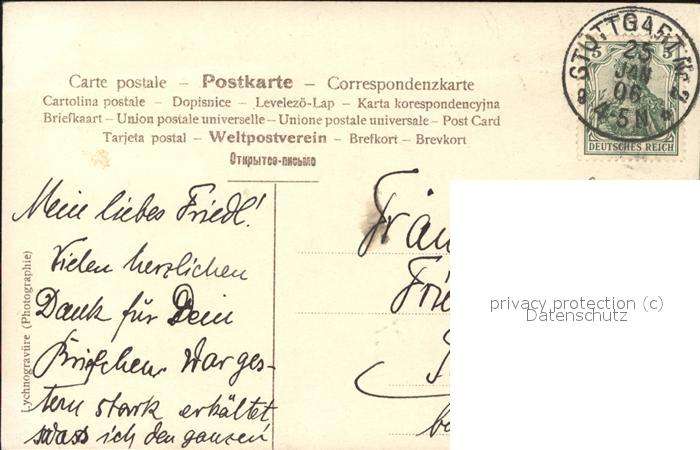 Carte postale – Postkarte – Correspondenzkarte
Cartolina postale – Dopisnice – Levelező-Lap – Karta korespondencyjna
Briefkaart – Union postale universelle – Unione postale universale – Post Card
Tarjeta postal – Weltpostverein – Brefkort – Brevkort
Открытое-письмо
STUTTGART Nr. 2
25
JAN
06
4-5 N
5 5
DEUTSCHES REICH
Mein liebes Friedl!
Vielen herzlichen
Dank für Dein
Briefchen. War ges-
tern stark erkältet
sodass ich den ganzen
Fräu
Frie
be
privacy protection (c)
Datenschutz
Lychnogravüre (Photographie)